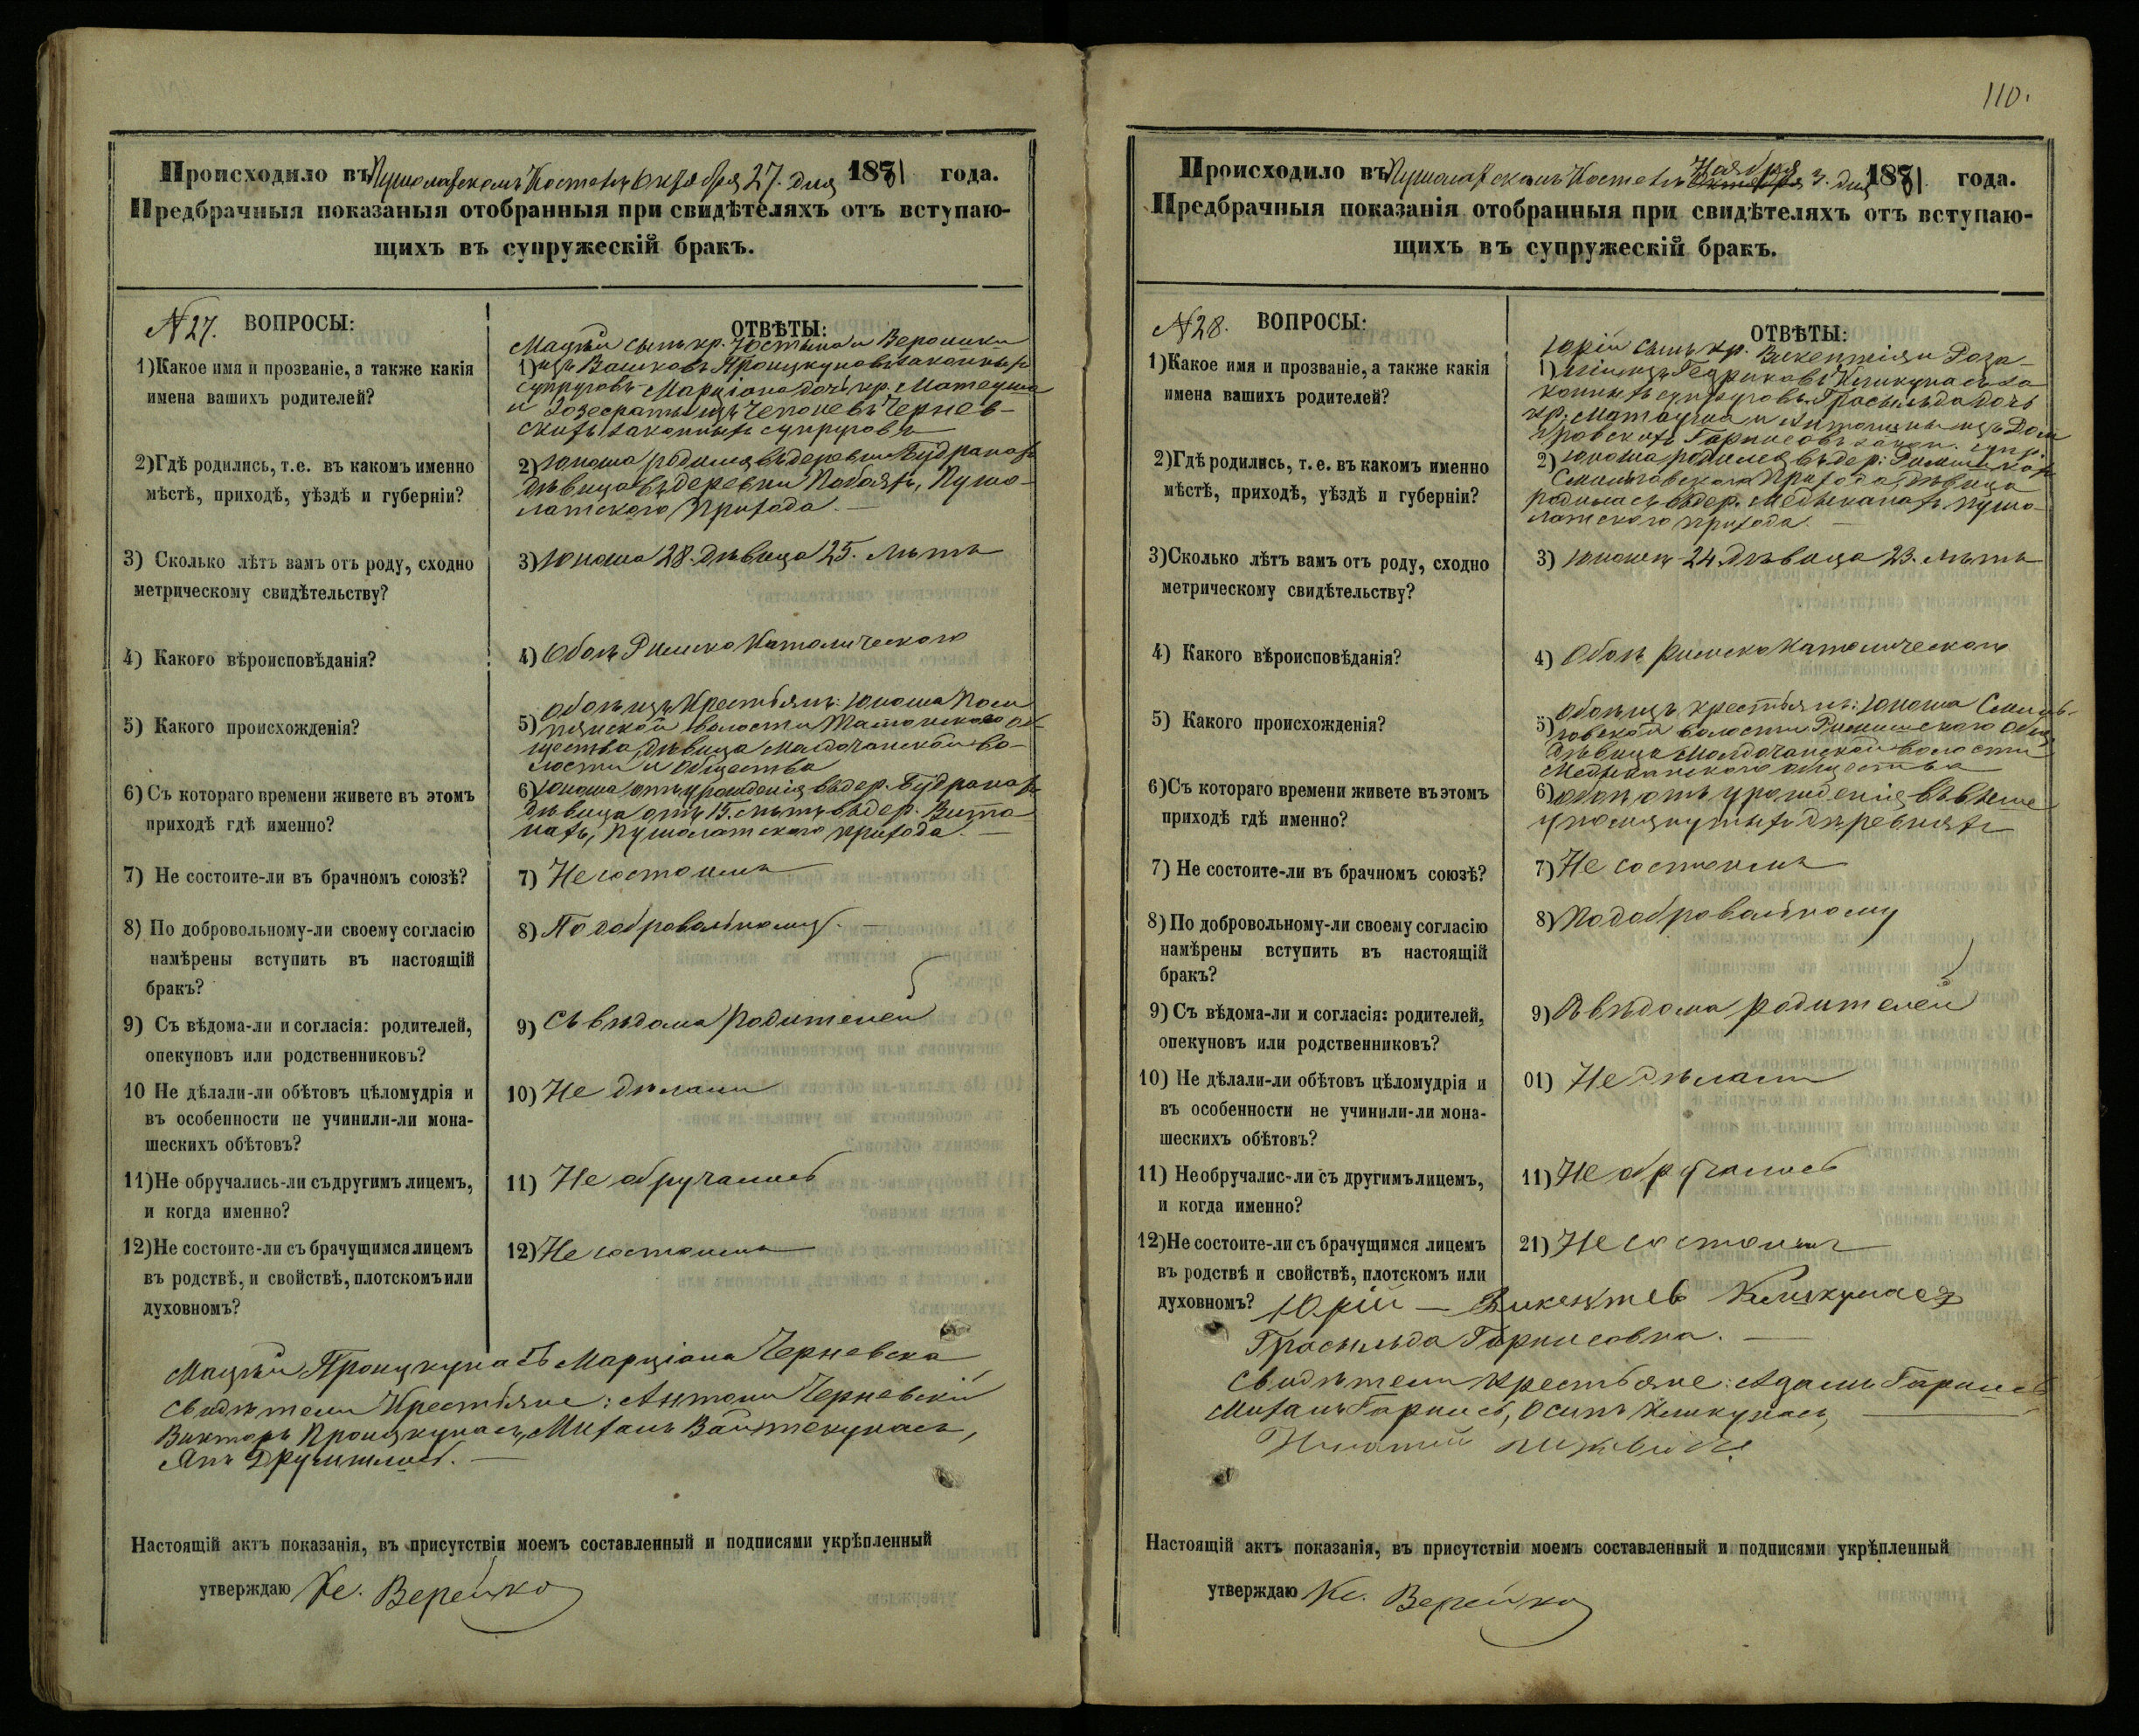 Происходило въ Пушолатскомъ Костелѣ Октября 27. дня 1881 года.
Предбрачныя показаныя отобранныя при свидѣтеляхъ отъ вступаю-
щихъ въ супружескій бракъ.
N 27. ВОПРОСЫ:
1)Какое имя и прозваніе, а также какія
имена вашихъ родителей?
2)Гдѣ родились, т.е. въ какомъ именно
мѣстѣ, приходѣ, уѣздѣ и губерніи?
3) Сколько лѣтъ вамъ отъ роду, сходно
метрическому свидѣтельству?
4) Какого вѣроисповѣданія?
5) Какого происхожденія?
6) Съ котораго времени живете въ этомъ
приходѣ гдѣ именно?
7) Не состоите-ли въ брачномъ союзѣ?
8) По добровольному-ли своему согласію
намѣрены вступить въ настоящій
бракъ?
9) Съ вѣдома-ли и согласія: родителей,
опекуновъ или родственниковъ?
10 Не дѣлали-ли обѣтовъ цѣломудрія и
въ особенности не учинили-ли мона-
шескихъ обѣтовъ?
11)Не обручались-ли съ другимъ лицемъ,
и когда именно?
12)Не состоите-ли съ брачущимся лицемъ
въ родствѣ, и свойствѣ, плотскомъ или
духовномъ?
ОТВѢТЫ:
Мацѣй сынъ кр. Юстына и Вероники
1) изъ Вашковъ Пронцкуновъ законныхъ
супруговъ Марціана дочь кр. Матеуша
и
законныхъ супруговъ
2) Юноша родился въ деревни Будранахъ
Дѣвица въ деревни Побояхъ, Пушо-
латского прихода. —
3) Юноша 28. Дѣвица 25. лѣтъ
4) Обоя Римско Католического
обоя изъ Крестьянъ: Юноша
5) волости
щества, Дѣвица во-
лости и Общества
6) Юноша отъ урожденія въ дер. Будранахъ
Дѣвица отъ 15. лѣтъ въ дер.
Пушолатского прихода. —
7) Не состоимъ
8) По добровольному. —
9) Съ вѣдома родителей
10) Не дѣлали
11) Не обручались
12) Не состоимъ
Мацѣй Пронцкунасъ Марціана Черневска
Свидѣтели Крестьяне: Антони Черневскій
Викторъ Пронцкунасъ, Михалъ
Янъ
Настоящій актъ показанія, въ присутствіи моемъ составленный и подписями укрѣпленный
утверждаю Кс. Верейко
110.
Происходило въ Пушолатскомъ Костелѣ Ноября 3. дня 1881 года.
Предбрачныя показанія отобранныя при свидѣтеляхъ отъ вступаю-
щихъ въ супружескій бракъ.
N 28. ВОПРОСЫ:
1)Какое имя и прозваніе, а также какія
имена вашихъ родителей?
2)Гдѣ родились, т. е. въ какомъ именно
мѣстѣ, приходѣ, уѣздѣ и губерніи?
3)Сколько лѣтъ вамъ отъ роду, сходно
метрическому свидѣтельству?
4) Какого вѣроисповѣданія?
5) Какого происхожденія?
6)Съ котораго времени живете въ этомъ
приходѣ гдѣ именно?
7) Не состоите-ли въ брачномъ союзѣ?
8) По добровольному-ли своему согласію
намѣрены вступить въ настоящій
бракъ?
9) Съ вѣдома-ли и согласія: родителей,
опекуновъ или родственниковъ?
10) Не дѣлали-ли обѣтовъ цѣломудрія и
въ особенности не учинили-ли мона-
шескихъ обѣтовъ?
11) Необручалис-ли съ другимъ лицемъ,
и когда именно?
12)Не состоите-ли съ брачущимся лицемъ
въ родствѣ и свойствѣ, плотскомъ или
духовномъ?
ОТВѢТЫ:
Юрій сынъ кр. Викентія и Роза-
1) изъ за-
конныхъ супруговъ. Грасыльда дочь
кр. Матауша и Антонины изъ Дом
бровскихъ Гарнисовъ закон. супр.
2) Юноша родился въ дер:
Смильговского Прихода, Дѣвица
родилась въ дер. Медыканахъ пушо-
латского прихода. —
3) Юноша 24 Дѣвица 23. лѣтъ
4) Обоя римско Католического
Обоя изъ крестьянъ: Юноша Смиль-
5) говской волости Общ.
Дѣвица волости
Медыканского общества
6) обоя отъ урожденія въ выше
упомянутыхъ деревняхъ
7) Не состоимъ
8) По добровольному
9) Съ вѣдома родителей
01) Не дѣлали
11) Не обручались
21) Не состоимъ
Юрій — Викентьев
Грасыльда Гарнисовна. —
Свидѣтели крестьяне: Адамъ Гарнисъ
Михалъ Гарнисъ, Осипъ
Настоящій актъ показанія, въ присутствіи моемъ составленный и подписями укрѣпленный
утверждаю Кс. Верейко